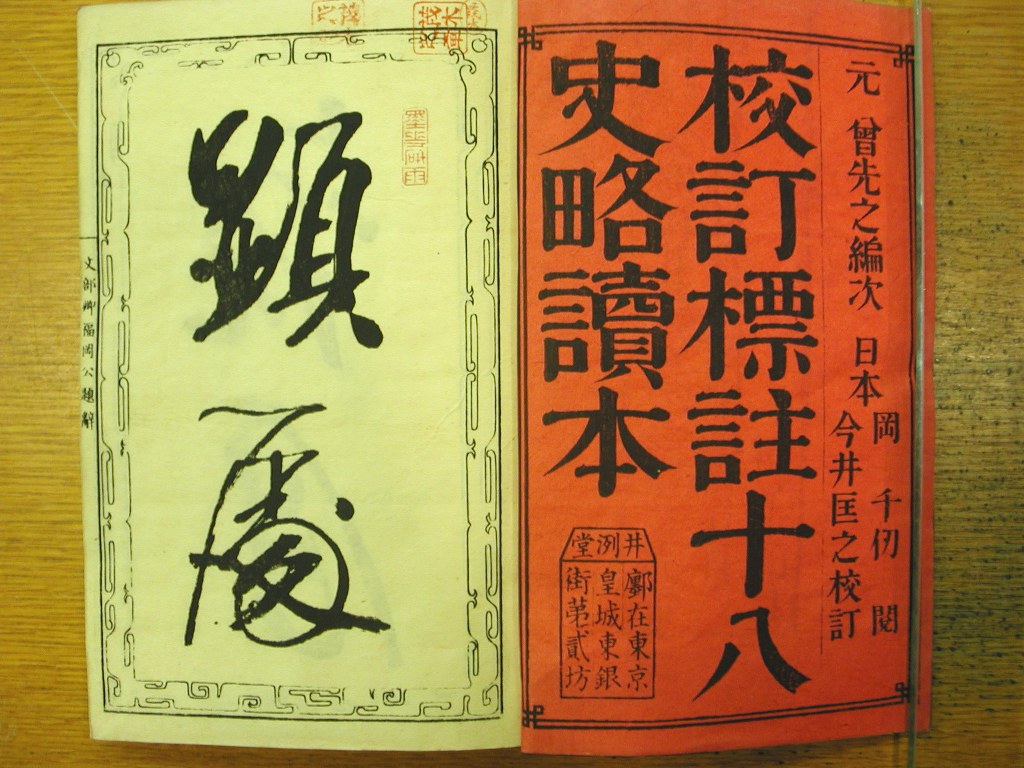 元 曾先之編次 日本 岡 千仞 閱
今井匡之校訂
校訂標註十八
史略讀本
井洌堂
鄽在東京
皇城東銀
街第貳坊
顕
文部卿福岡公題辭